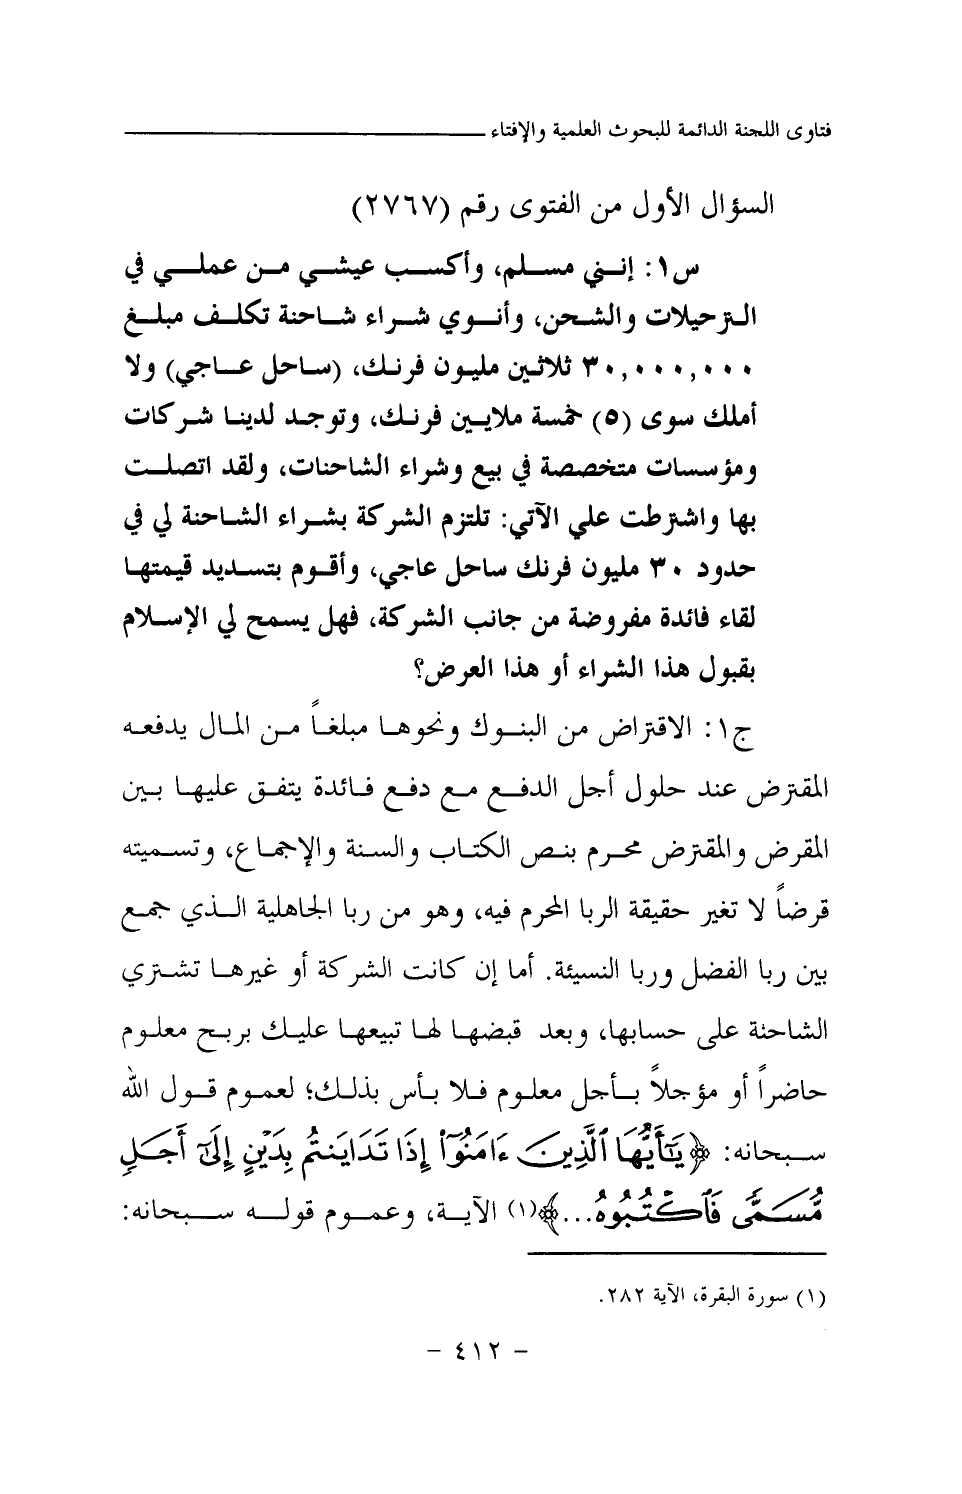 فتاوى اللجنة الدائمة للبحوث العلمية والإفتاء
السؤال الأول من الفتوى رقم (٢٧٦٧)
س١: إنني مسلم، وأكسب عيشي من عملي في
الترحيلات والشحن، وأنوي شراء شاحنة تكلف مبلغ
٣٠,٠٠٠,٠٠٠ ثلاثين مليون فرنك، (ساحل عاجي) ولا
أملك سوى (٥) خمسة ملايين فرنك، وتوجد لدينا شركات
ومؤسسات متخصصة في بيع وشراء الشاحنات، ولقد اتصلت
بها واشترطت علي الآتي: تلتزم الشركة بشراء الشاحنة لي في
حدود ٣٠ مليون فرنك ساحل عاجي، وأقوم بتسديد قيمتها
لقاء فائدة مفروضة من جانب الشركة، فهل يسمح لي الإسلام
بقبول هذا الشراء أو هذا العرض؟
ج١: الاقتراض من البنوك ونحوها مبلغاً من المال يدفعه
المقترض عند حلول أجل الدفع مع دفع فائدة يتفق عليها بين
المقرض والمقترض محرم بنص الكتاب والسنة والإجماع، وتسميته
قرضاً لا تغير حقيقة الربا المحرم فيه، وهو من ربا الجاهلية الذي جمع
بين ربا الفضل وربا النسيئة. أما إن كانت الشركة أو غيرها تشتري
الشاحنة على حسابها، وبعد قبضها لها تبيعها عليك بربح معلوم
حاضراً أو مؤجلاً بأجل معلوم فلا بأس بذلك؛ لعموم قول الله
سبحانه: ﴿يَٰٓأَيُّهَا ٱلَّذِينَ ءَامَنُوٓا۟ إِذَا تَدَايَنتُم بِدَيْنٍ إِلَىٰٓ أَجَلٍ
مُّسَمًّى فَٱكْتُبُوهُ...﴾(١) الآية، وعموم قوله سبحانه:
(١) سورة البقرة، الآية ٢٨٢.
- ٤١٢ -